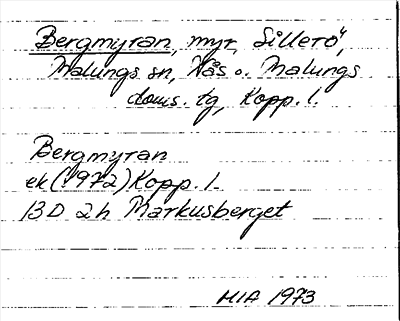 Bergmyran, myr, Sillerö,
Malungs sn, Nås o. Malungs
doms. tg, Kopp. l.
Bergmyran
ek (1972) Kopp. l.
13D 2h Markusberget
MIA 1973